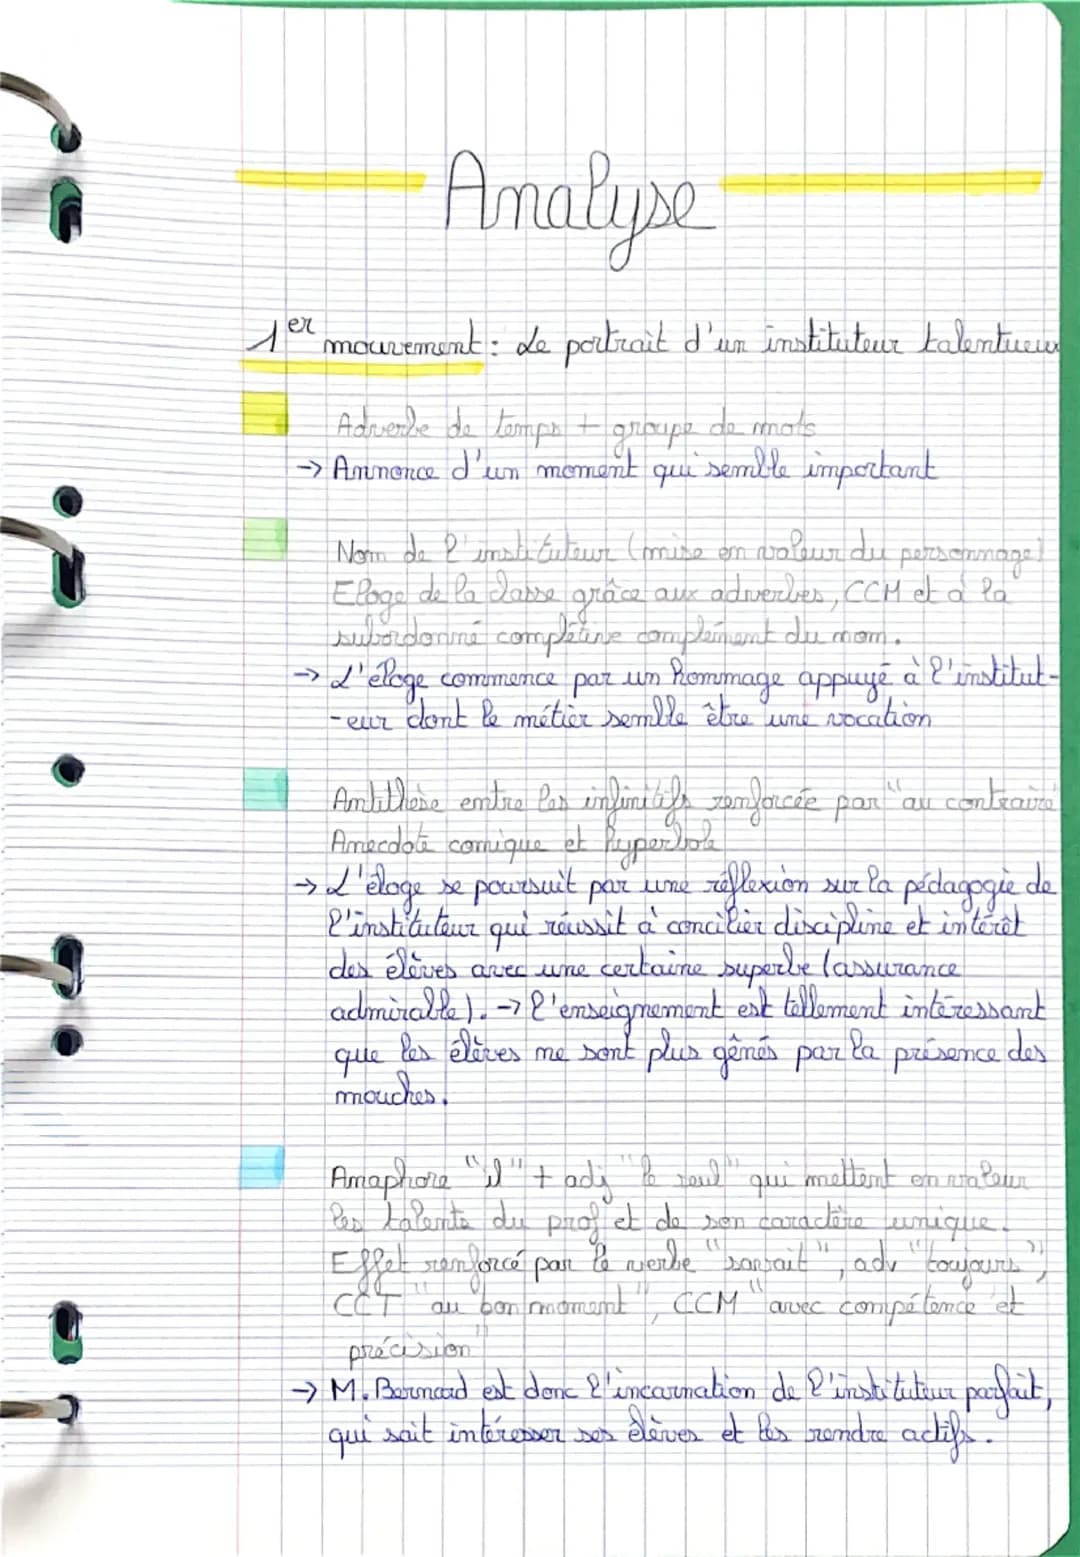 Analyse
1er mouvement : Le portrait d'un instituteur talentueux
Adverbe de temps + groupe de mots
→ Annonce d'un moment qui semble important
Nom de l'instituteur (mise en valeur du personnage)
Eloge de la classe grâce aux adverbes, CCM et à la
subordonné complétive complément du nom.
→ L'éloge commence par un hommage appuyé à l'institut-
-eur dont le métier semble être une vocation
Antithèse entre les infinitifs renforcée par "au contraire"
Anecdote comique et hyperbole
→ L'éloge se poursuit par une réflexion sur la pédagogie de
l'instituteur qui réussit à concilier discipline et intérêt
des élèves avec une certaine superbe (assurance
admirable). → l'enseignement est tellement intéressant
que les élèves ne sont plus gênés par la présence des
mouches.
Anaphore "il" + adj "le seul" qui mettent en valeur
les talents du prof et de son caractère unique.
Effet renforcé par le verbe "savait", adv "toujours",
CCT "au bon moment", CCM "avec compétence et
précision"
→ M. Bernard est donc l'incarnation de l'instituteur parfait,
qui sait intéresser ses élèves et les rendre actifs.